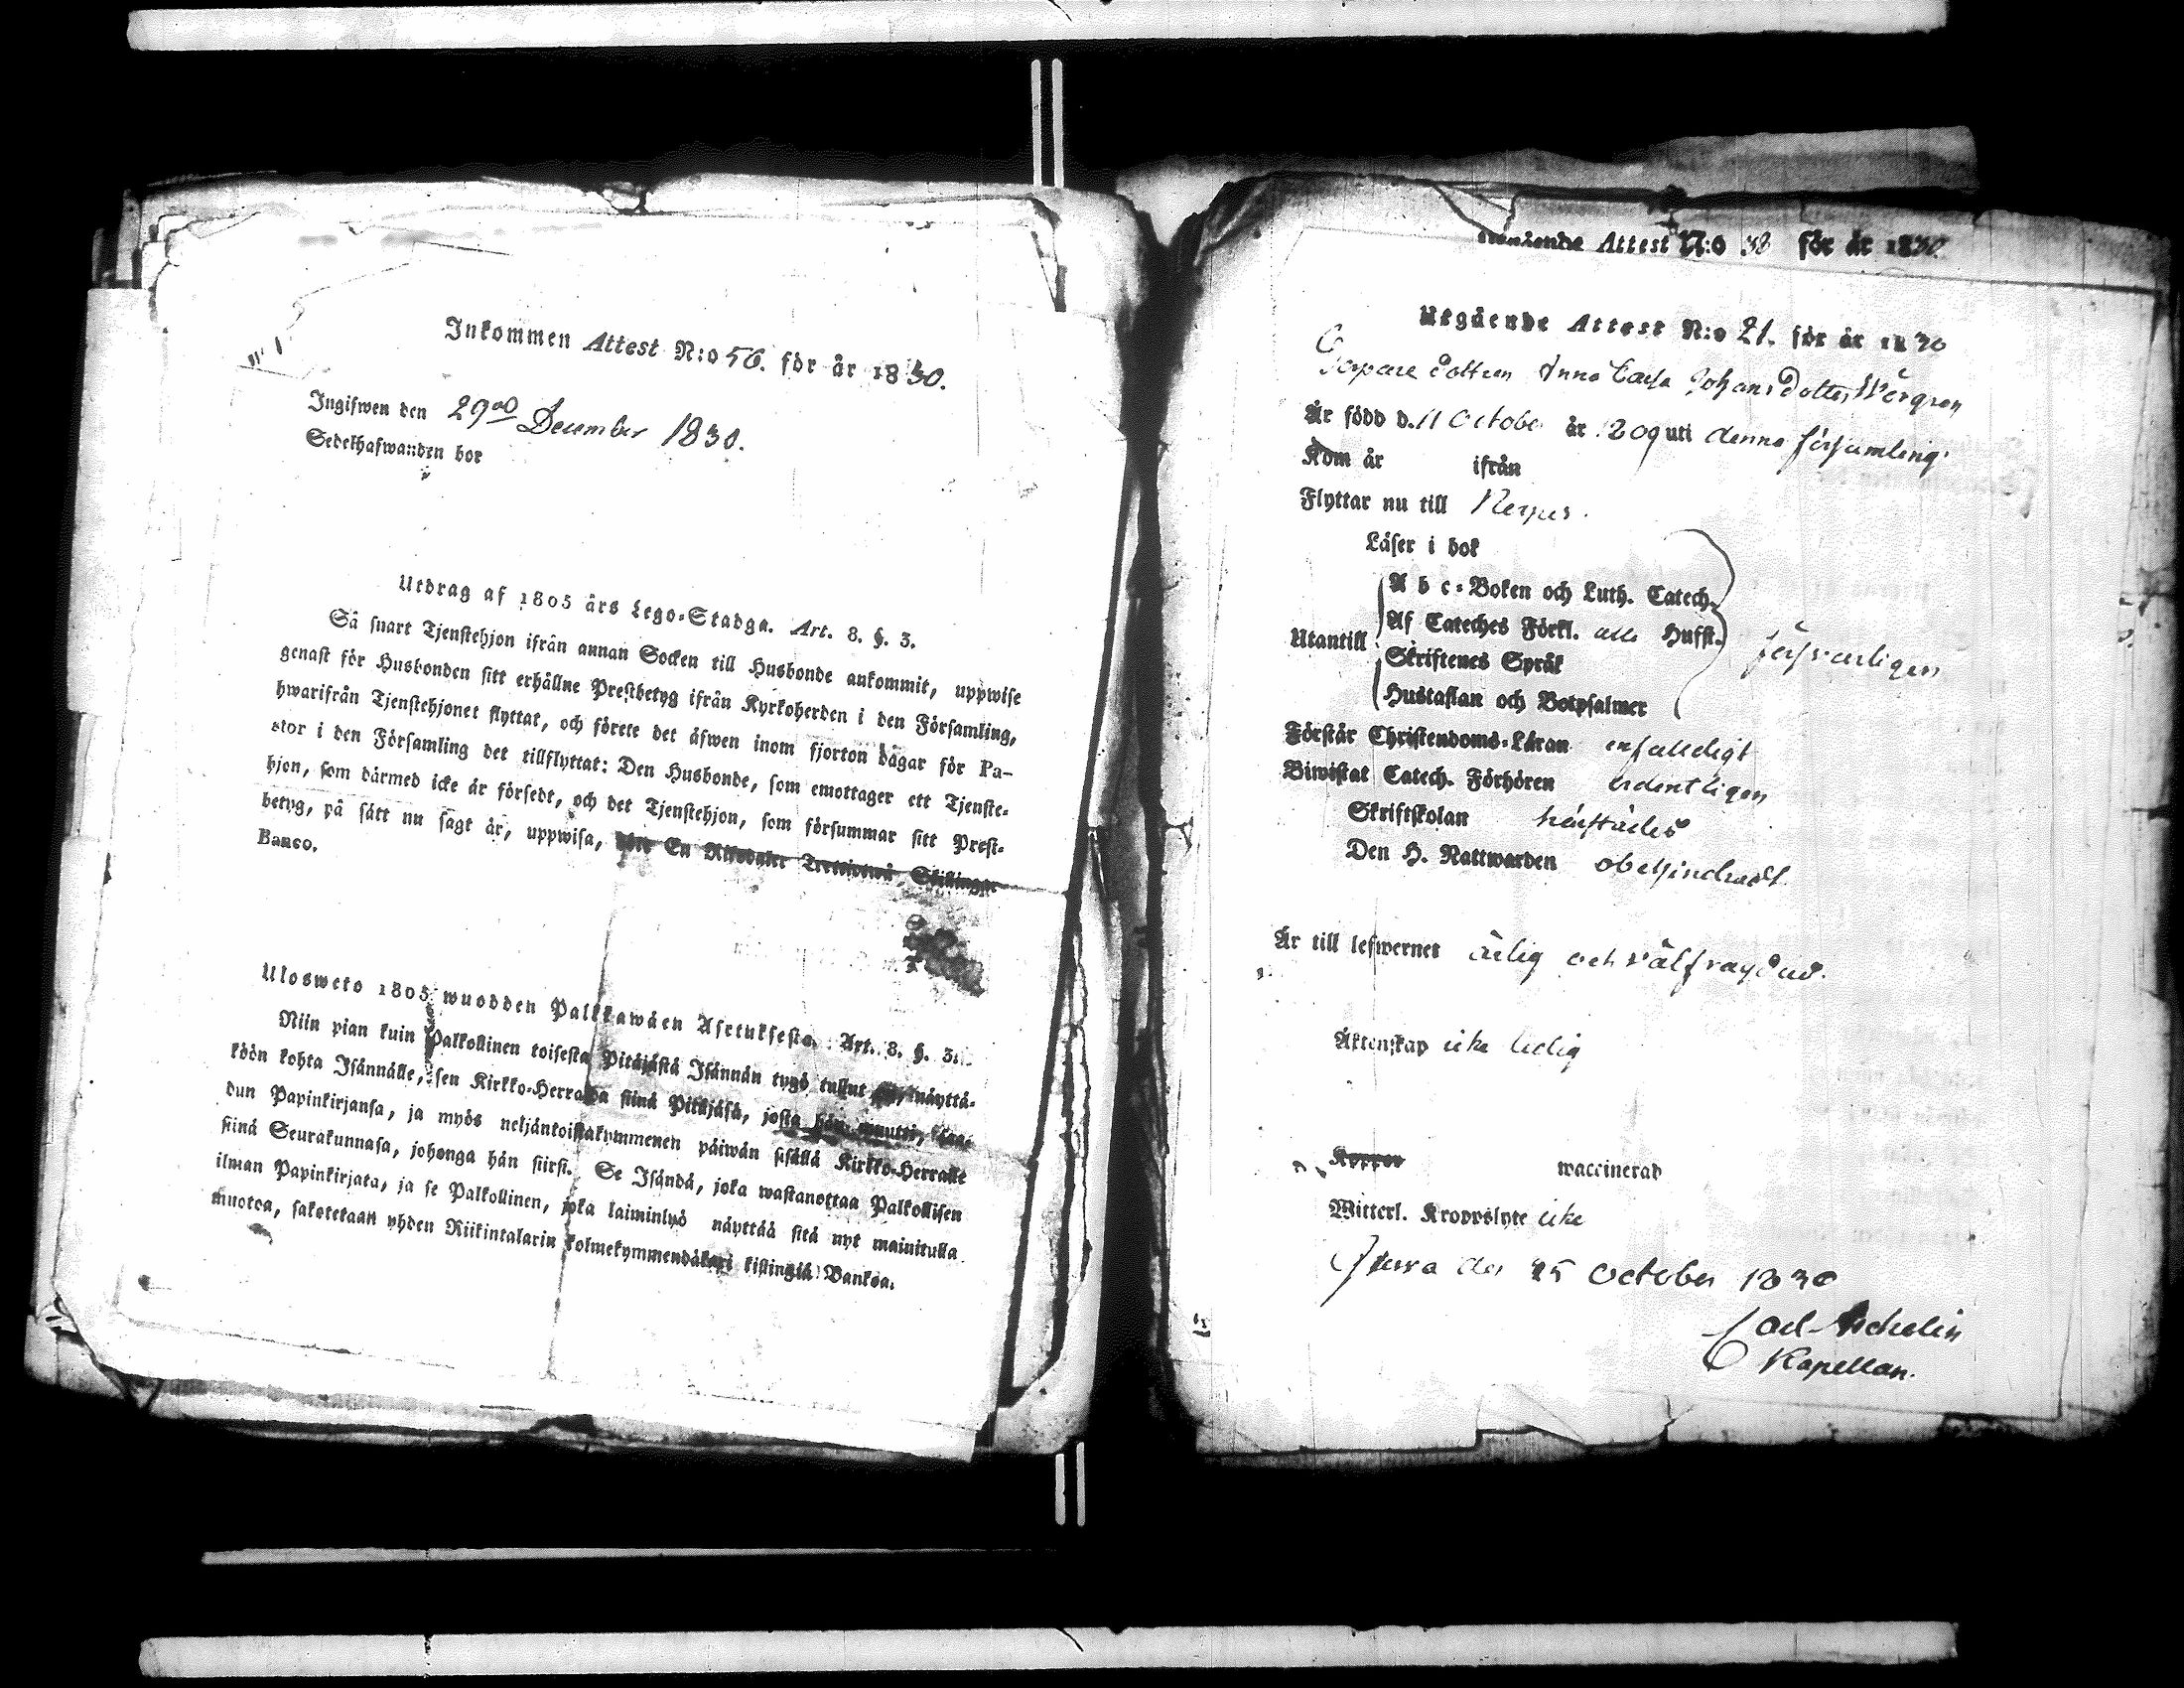 Inkommen Attest N:o 56. för år 1830.
Ingifwen den 29de December 1830.
Sedelhafwanden bor
Utdrag af 1805 års Lego-Stadga. Art. 8. §. 3.
Så snart Tjenstehjon ifrån annan Socken till Husbonde ankommit, uppwise
genast för Husbonden sitt erhållne Prestbetyg ifrån Kyrkoherden i den Församling,
hwarifrån Tjenstehjonet flyttat, och förete det äfwen inom fjorton dagar för Pa-
stor i den Församling det tillflyttat: Den Husbonde, som emottager ett Tjenste-
hjon, som därmed icke är försedt, och det Tjenstehjon, som försummar sitt Prest-
betyg, på sätt nu sagt är, uppwisa, En Riksdaler Trettiotwå Skillingar
Banco.
Ulosweto 1805 wuodden Palkkawäen Asetuksesta. Art. 8. §. 3.
Niin pian kuin Palkollinen toisesta Pitäjästä Isännän tygö tullut on, näyttä-
köön kohta Isännälle, sen Kirkko-Herralda siinä Pitäjäsä, josta hän muutti, saa-
dun Papinkirjansa, ja myös neljäntoistakymmenen päiwän sisällä Kirkko-Herralle
siinä Seurakunnasa, johonga hän siirsi. Se Isändä, joka wastanottaa Palkollisen
ilman Papinkirjata, ja se Palkollinen, joka laiminlyö näyttää sitä nyt mainitulla
muotoa, sakotetaan yhden Riikintalarin kolmekymmendäkaxi killingiä Bankoa.
Attest N:o 38 för år 1830.
Utgående Attest N:o 21. för år 1830
dottren Anna Johansdotter
Är född d. 11 October år 1809 uti denna församling.
Kom år ifrån
Flyttar nu till
Läser i bok
A b c-Boken och Luth. Catech.
Utantill Af Cateches Förkl. alla Husst. försvarligen
Skriftenes Språk
Hustaflan och Botpsalmer
Förstår Christendoms-Läran enfaldeligt
Biwistat Catech. Förhören ordentligen
Skriftskolan
Den H. Nattwarden obehindradt
Är till lefwernet ärlig och välfräjdad.
Äktenskap icke ledig
Koppor waccinerad
Witterl. Kroppslyte icke
den 25 October 1830
Carl
Kapellan.